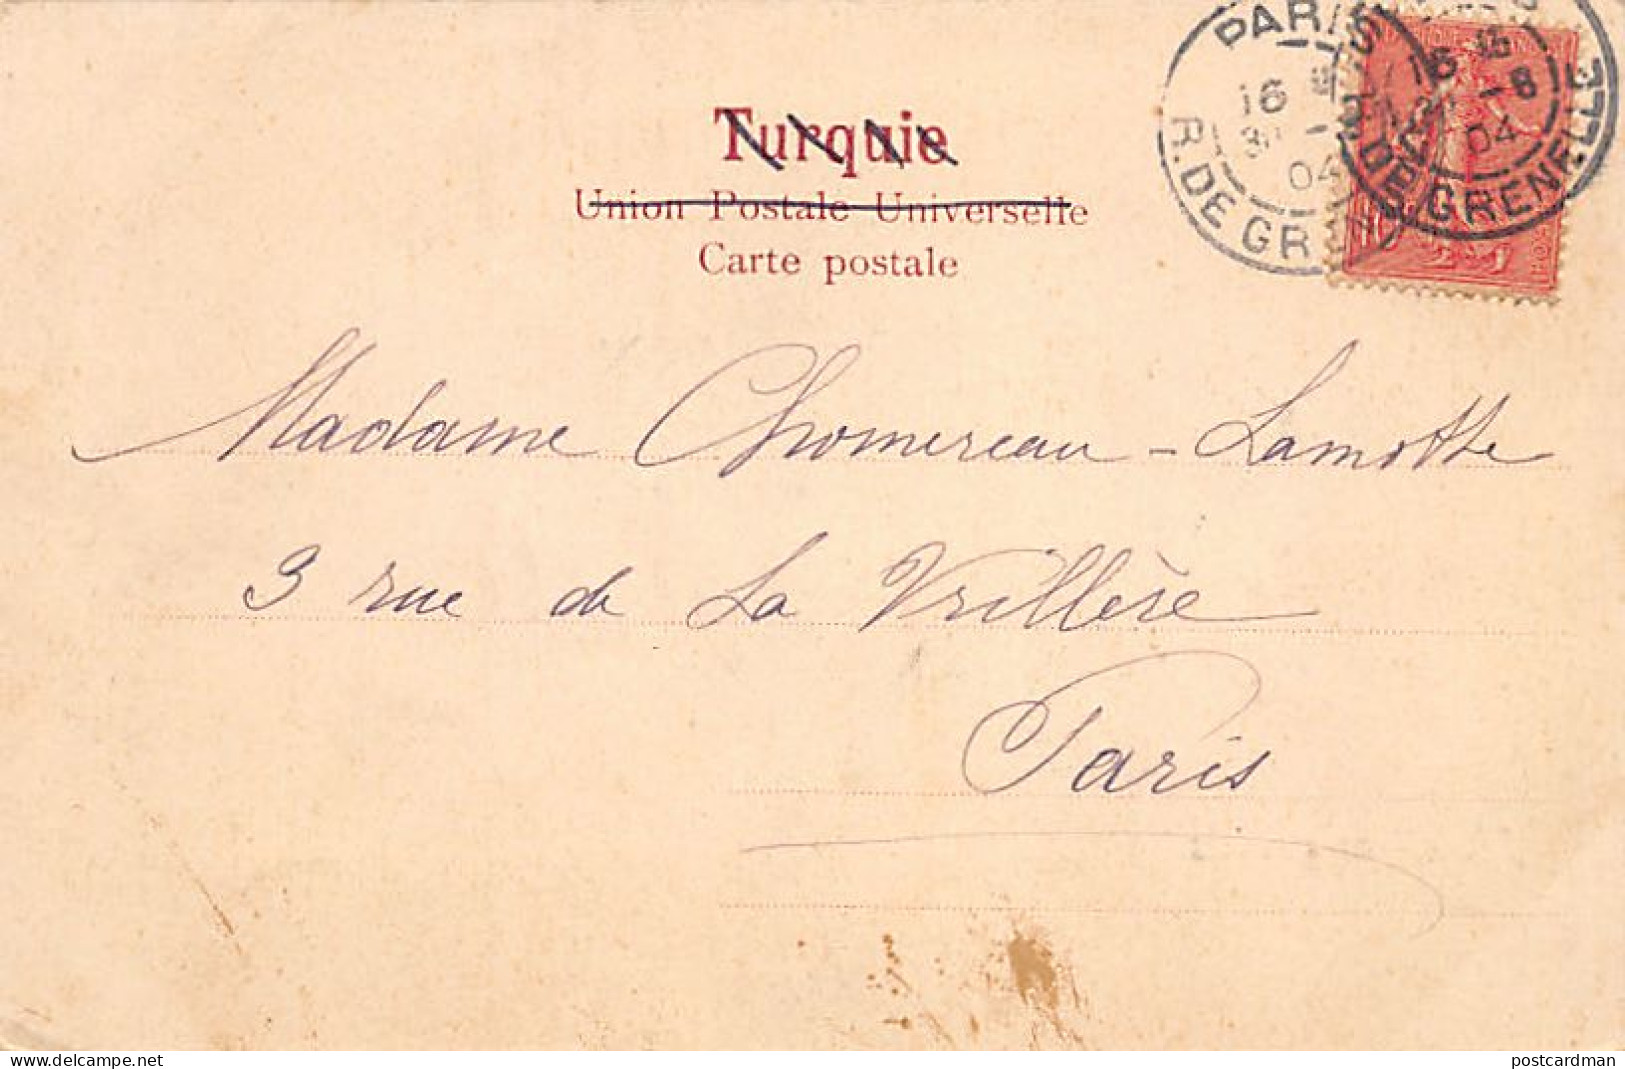 Turquie
Union Postale Universelle
Carte postale
PARIS
16
04
R. DE GR
16
-8
04
R. DE GRENELLE
Madame Chomereau-Lamotte
3 rue de La Vrillère
Paris
delcampe.net
postcardman